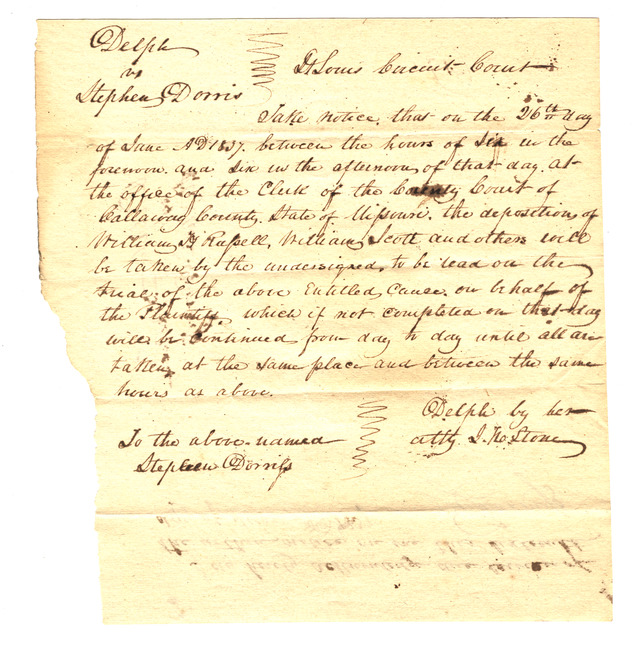 Delph
vs
Stephen Dorris
St Louis Circuit Court
Take notice, that on the 26th day
of June AD 1837. between the hours of Six in the
forenoon and Six in the afternoon of that day at
the office of the Clerk of the County Court of
Callaway County, State of Missouri. the deposition of
William H Russell, William Scott and others will
be taken by the undersigned, to be read on the
trial of the above Entitled Cause. on behalf of
the Plaintiff, which if not completed on that day
will be continued from day to day until all are
taken, at the same place and between the same
hours as above.
Delph by her
atty J. Stone
To the above named
Stephen Dorriss